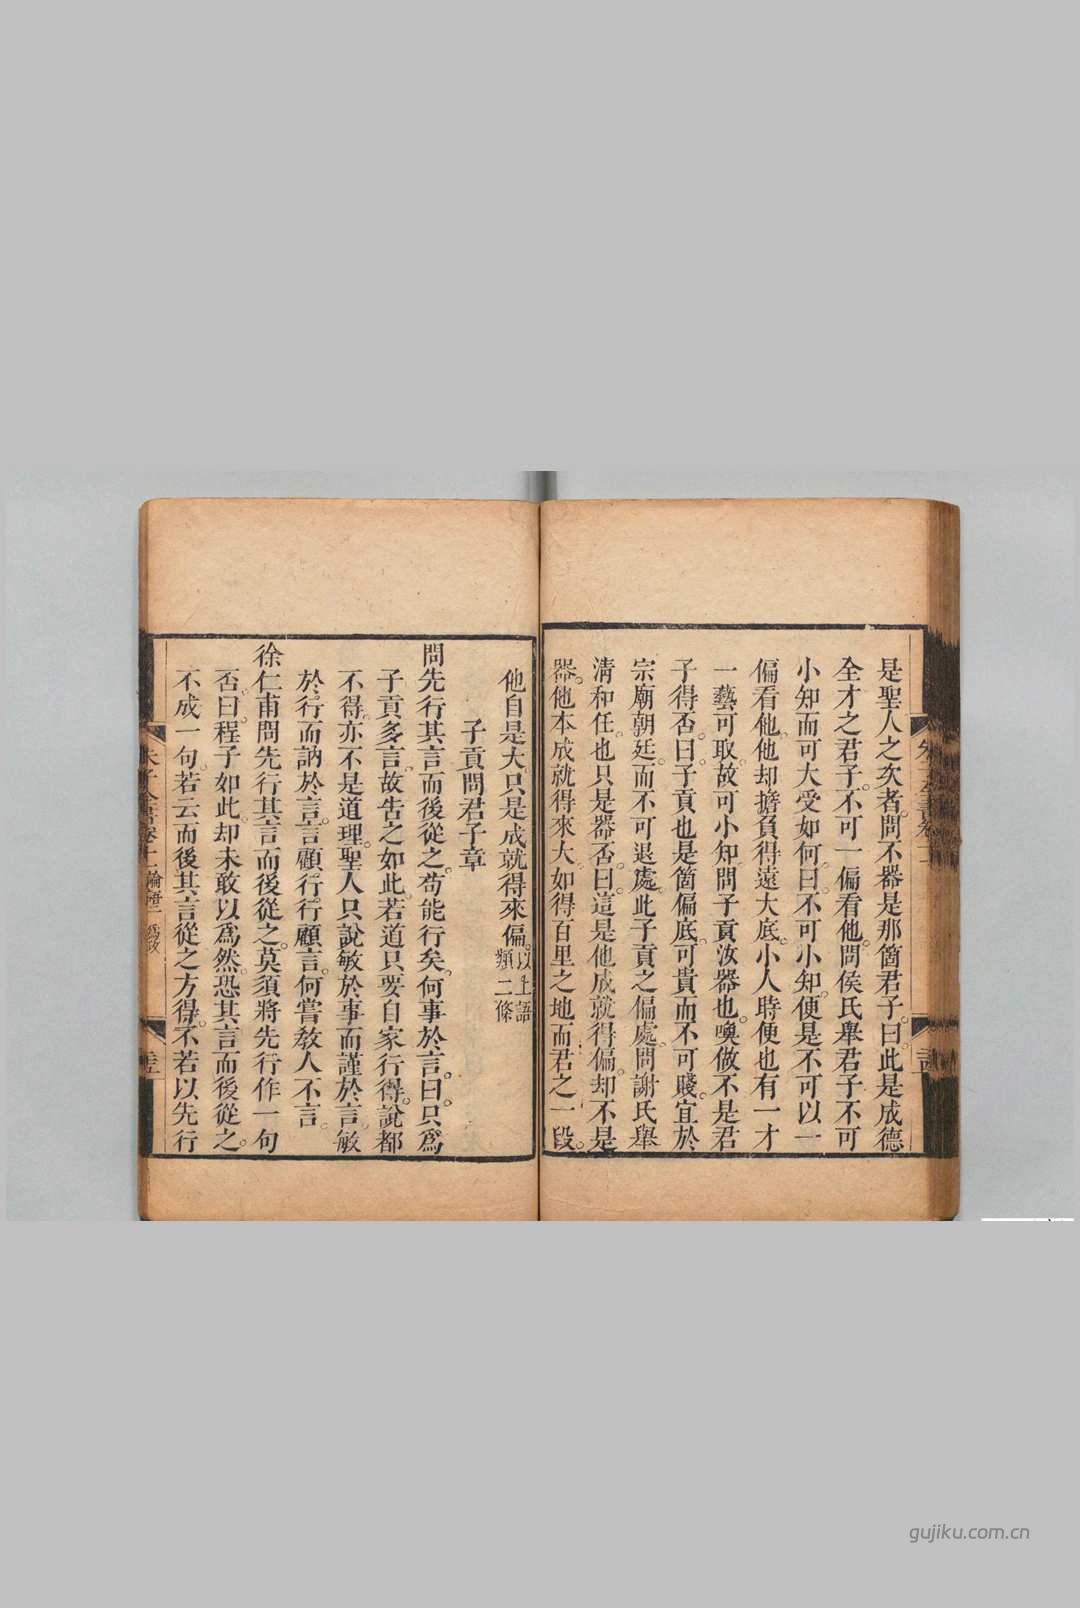 是聖人之次者。問不器是那箇君子。曰此是成德
全才之君子。不可一偏看他。問侯氏舉君子不可
小知而可大受如何。曰不可小知。便是不可以一
偏看他。他却擔負得遠大底。小人時便也有一才
一藝可取。故可小知。問子貢汝器也。喚做不是君
子得否。曰子貢也是箇偏底。可貴而不可賤。宜於
宗廟朝廷。而不可退處。此子貢之偏處。問謝氏舉
清和任。也只是器否。曰這是他成就得偏。却不是
器。他本成就得來大。如得百里之地而君之一段。
他自是大。只是成就得來偏。以上語
類二條
子貢問君子章
問先行其言而後從之。苟能行矣。何事於言。曰。只爲
子貢多言。故告之如此。若道只要自家行得。說都
不得。亦不是道理。聖人只說敏於事而謹於言。敏
於行而訥於言。言顧行。行顧言。何嘗敎人不言。
徐仁甫問先行其言而後從之。莫須將先行作一句
否。曰。程子如此。却未敢以爲然。恐其言而後從之。
不成一句。若云而後其言從之方得。不若以先行
朱子全書卷十一 論語二 爲政
gujiku.com.cn